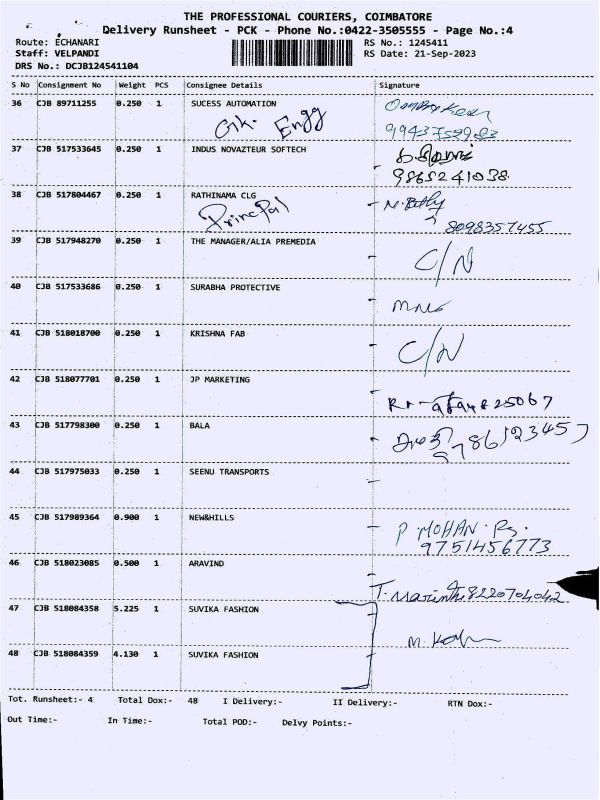 THE PROFESSIONAL COURIERS, COIMBATORE
Delivery Runsheet - PCK - Phone No.:0422-3505555 - Page No.:4
Route: ECHANARI RS No.: 1245411
Staff: VELPANDI RS Date: 21-Sep-2023
DRS No.: DCJB124541104
S No Consignment No Weight PCS Consignee Details Signature
36 CJB 89711255 0.250 1 SUCESS AUTOMATION
Engg
37 CJB 517533645 0.250 1 INDUS NOVAZTEUR SOFTECH
9865241038
38 CJB 517804467 0.250 1 RATHINAMA CLG
Principal 8098357455
39 CJB 517948270 0.250 1 THE MANAGER/ALIA PREMEDIA
C/N
40 CJB 517533686 0.250 1 SURABHA PROTECTIVE
41 CJB 518018700 0.250 1 KRISHNA FAB
C/N
42 CJB 518077701 0.250 1 JP MARKETING
43 CJB 517798300 0.250 1 BALA
44 CJB 517975033 0.250 1 SEENU TRANSPORTS
45 CJB 517989364 0.900 1 NEW&HILLS
P. MOHAN
9751456773
46 CJB 518023085 0.500 1 ARAVIND
8220704042
47 CJB 518084358 5.225 1 SUVIKA FASHION
48 CJB 518084359 4.130 1 SUVIKA FASHION
Tot. Runsheet:- 4 Total Dox:- 48 I Delivery:- II Delivery:- RTN Dox:-
Out Time:- In Time:- Total POD:- Delvy Points:-